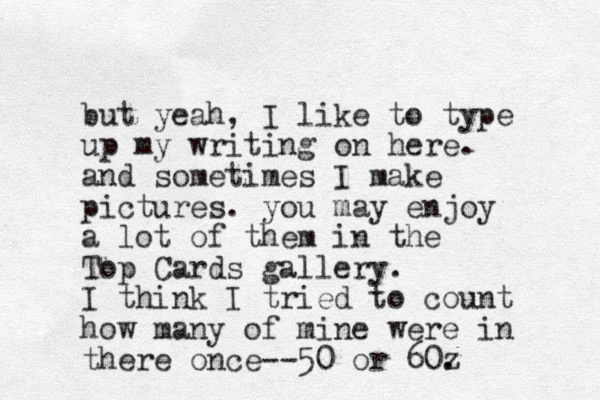 but yeah, I like to type
up my writing on here.
and sometimes I make
pictures. you may enjoy
a lot of them in the
Top Cards gallery.
I think I tried to count
how many of mine were in
there once--50 or 60